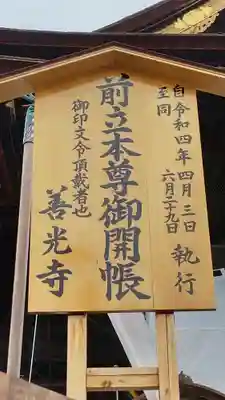 自令和四年四月三日
至同 六月二十九日 執行
前立本尊御開帳
御印文令頂戴者也
善光寺